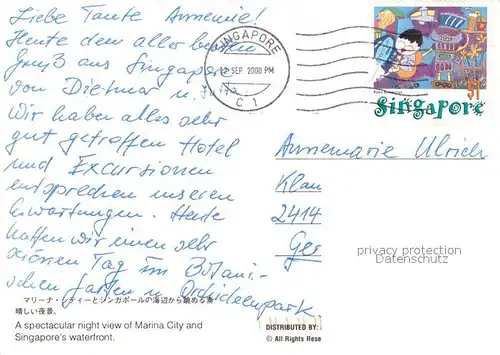 Liebe Tante Annemie!
Heute den aller besten
Gruß aus Singapore
von Dietmar u. Jutta
Wir haben alles sehr
gut getroffen Hotel
und Excursionen
entsprechen unseren
Erwartungen. Heute
hatten wir einen sehr
schönen Tag im Botani-
schen Garten u Orchideenpark.
マリーナ・シティーとシンガポールの海辺から眺める素
晴しい夜景。
A spectacular night view of Marina City and
Singapore's waterfront.
SINGAPORE
12 SEP 2000 PM
C 1
$1
Singapore
Annemarie Ulrich
Klau
2414
Ger
privacy protection
Datenschutz
DISTRIBUTED BY:
© All Rights Rese